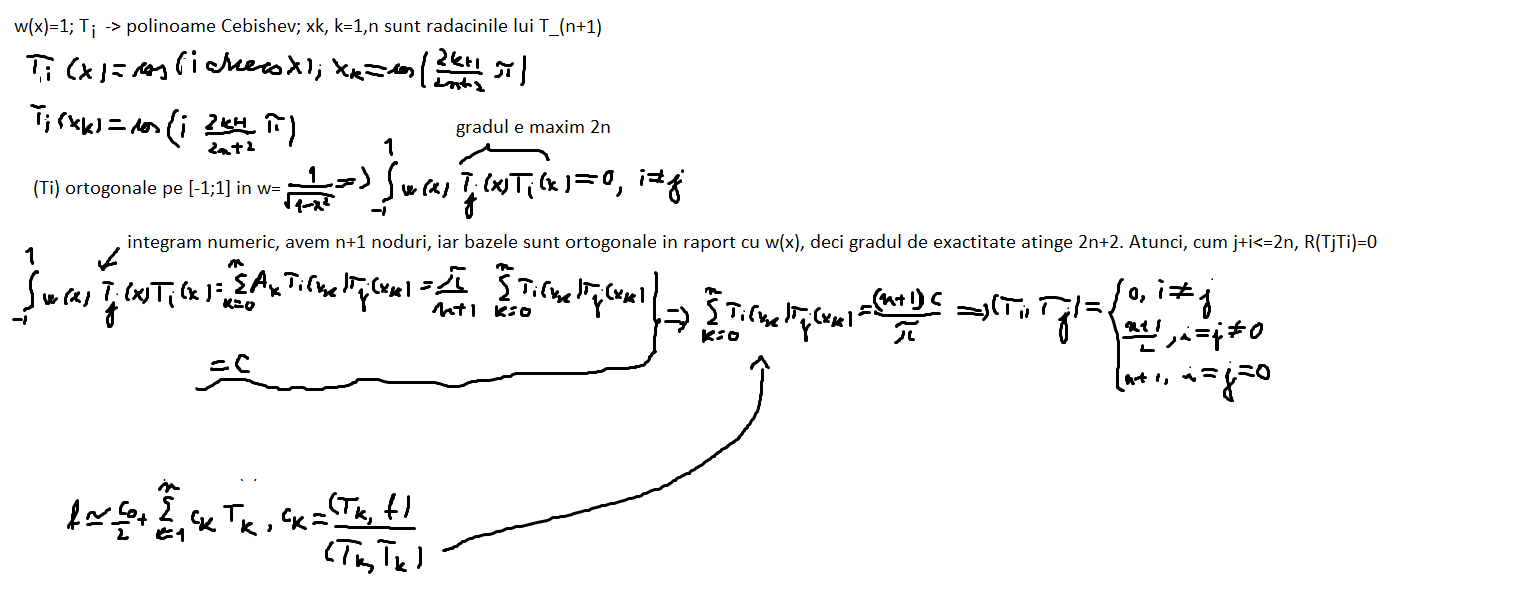 w(x)=1; T_i -> polinoame Cebishev; xk, k=1,n sunt radacinile lui T_(n+1)
T_i (x) = cos(i arccos x); x_k = cos(\frac{2k+1}{2n+2} π)
T_i(x_k) = cos(i \frac{2k+1}{2n+2} π)
gradul e maxim 2n
(Ti) ortogonale pe [-1;1] in w= \frac{1}{\sqrt{1-x^2}} => ∫_{-1}^{1} w(x) T_j(x)T_i(x) = 0, i≠j
integram numeric, avem n+1 noduri, iar bazele sunt ortogonale in raport cu w(x), deci gradul de exactitate atinge 2n+2. Atunci, cum j+i<=2n, R(TjTi)=0
∫_{-1}^{1} w(x) T_j(x)T_i(x) = \sum_{k=0}^{n} A_k T_i(x_k)T_j(x_k) = \frac{π}{n+1} \sum_{k=0}^{n} T_i(x_k)T_j(x_k) => \sum_{k=0}^{n} T_i(x_k)T_j(x_k) = \frac{(n+1)C}{π} => (T_i, T_j) = { 0, i≠j
\frac{n+1}{2}, i=j≠0
n+1, i=j=0
= C
f ≃ \frac{c_0}{2} + \sum_{k=1}^{n} c_k T_k, c_k = \frac{(T_k, f)}{(T_k, T_k)}